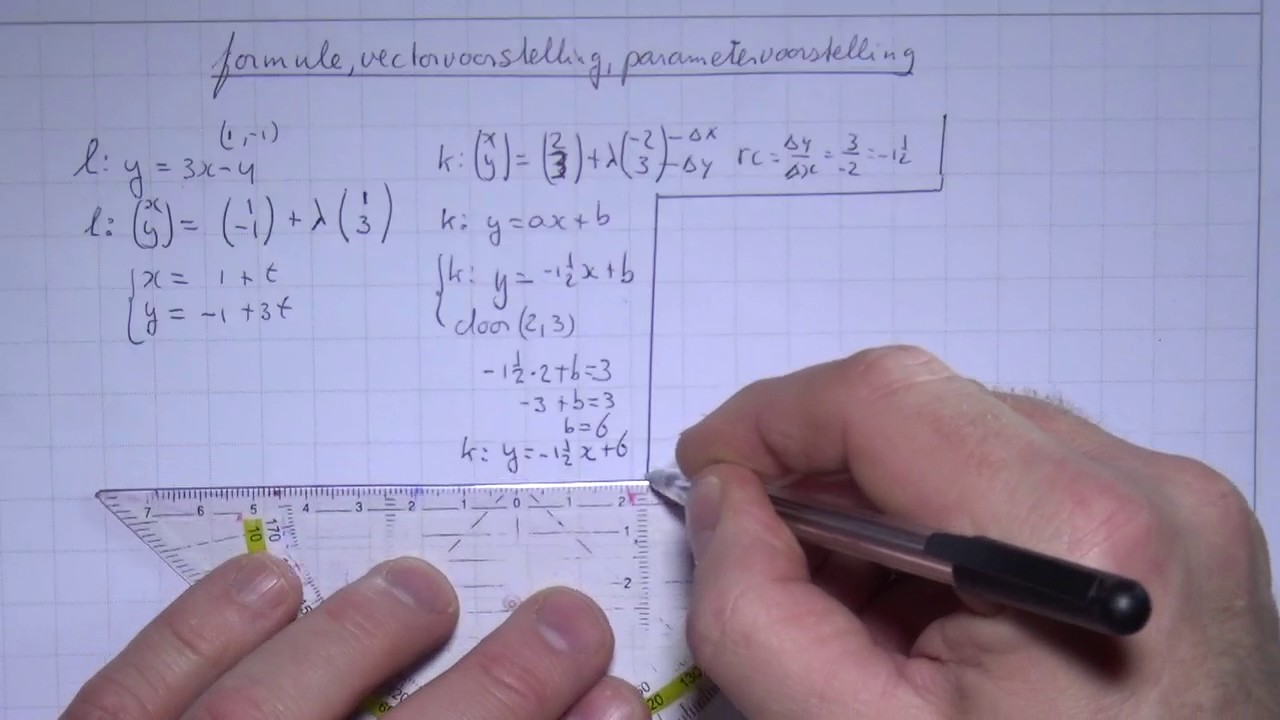 formule, vectorvoorstelling, parametervoorstelling
(1,-1)
l: y = 3x-4
l: (x y) = (1 -1) + λ (1 3)
{x = 1 + t
y = -1 + 3t
k: (x y) = (2 3) + λ (-2 3) -Δx -Δy rc = Δy/Δx = 3/-2 = -1½
k: y = ax + b
{k: y = -1½x + b
door (2,3)
-1½·2+b=3
-3+b=3
b=6
k: y=-1½x+6
7 6 5 4 3 2 1 0 1 2
10 170
1
2
20 130